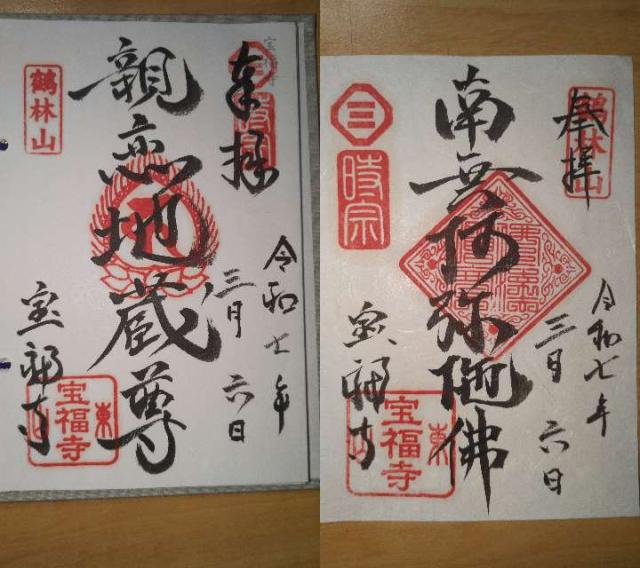 奉拝
時宗
令和七年
三月六日
親恋地蔵尊
鶴林山
宝福寺
宝福寺
東山
奉拝
鶴林山
令和七年
三月六日
南無阿弥陀佛
三
時宗
宝福寺
宝福寺
東山